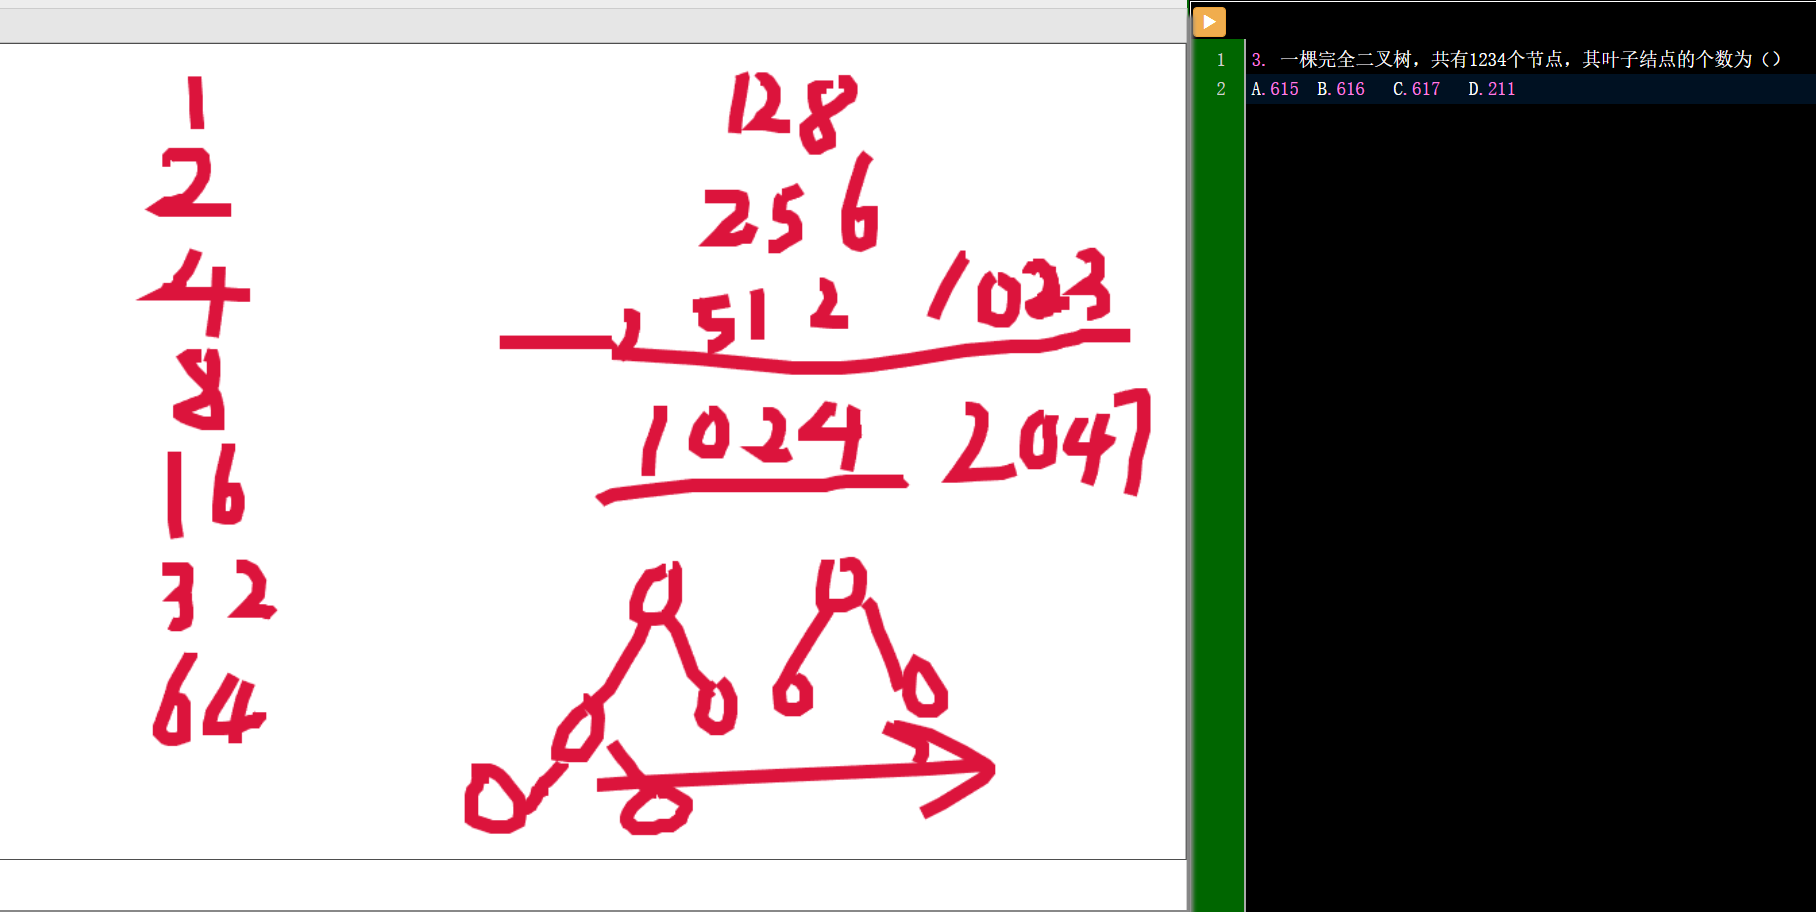 1
2
4
8
16
32
64
128
256
512 1023
1024 2047
1 3. 一棵完全二叉树，共有1234个节点，其叶子结点的个数为（）
2 A.615 B.616 C.617 D.211